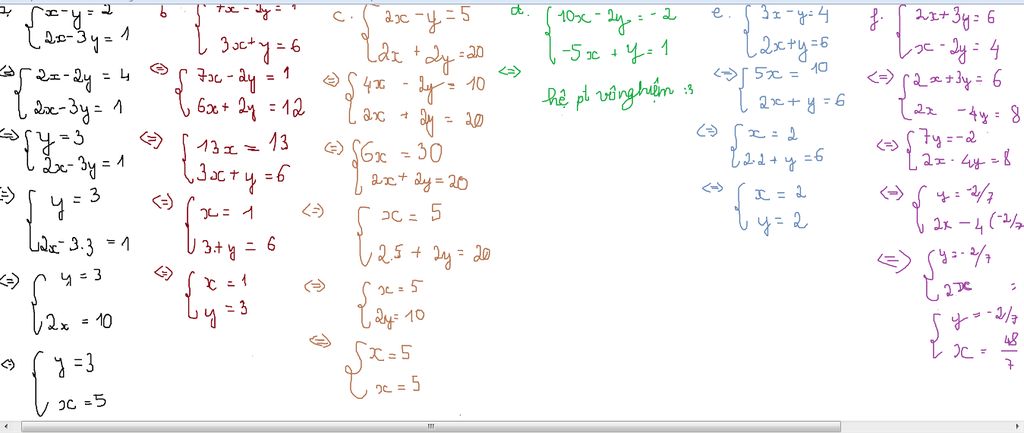 x - y = 2
2x - 3y = 1
<=> 2x - 2y = 4
2x - 3y = 1
<=> y = 3
2x - 3y = 1
<=> y = 3
2x - 3.3 = 1
<=> y = 3
2x = 10
<=> y = 3
x = 5
b. 7x - 2y = 1
3x + y = 6
<=> 7x - 2y = 1
6x + 2y = 12
<=> 13x = 13
3x + y = 6
<=> x = 1
3 + y = 6
<=> x = 1
y = 3
c. 2x - y = 5
2x + 2y = 20
<=> 4x - 2y = 10
2x + 2y = 20
<=> 6x = 30
2x + 2y = 20
<=> x = 5
2.5 + 2y = 20
<=> x = 5
2y = 10
<=> x = 5
x = 5
d. 10x - 2y = -2
-5x + y = 1
<=>
hệ pt vô nghiệm :3
e. 3x - y = 4
2x + y = 6
<=> 5x = 10
2x + y = 6
<=> x = 2
2.2 + y = 6
<=> x = 2
y = 2
f. 2x + 3y = 6
x - 2y = 4
<=> 2x + 3y = 6
2x - 4y = 8
<=> 7y = -2
2x - 4y = 8
<=> y = -2/7
2x - 4 (-2/7
<=> y = -2/7
2x =
y = -2/7
x = 48/7